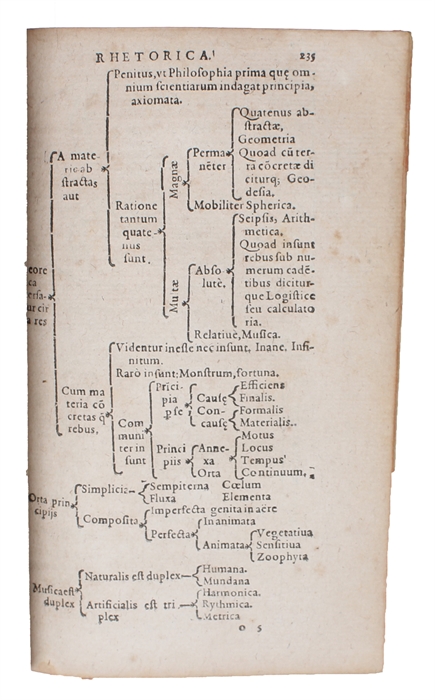 RHETORICA. 235
Penitus, vt Philosophia prima quę om-
nium scientiarum indagat principia,
axiomata.
A mate-
ria ab
stractas
aut
Ratione
tantum
quate-
nus
sunt.
Magnæ
Perma
nēter
Quatenus ab-
stractæ,
Geometria
Quoad cū ter-
ra cōcretæ di
citurq; Geo-
desia.
Mobiliter Spherica.
Mu tæ
Abso
lutè.
Seipsis; Arith-
metica.
Quoad insunt
rebus sub nu-
merum cadē-
tibus dicitur-
que Logistice
seu calculato
ria.
Relatiue, Musica.
eore
ca
ersa-
ur cir
a res
Cum ma
teria cō
cretas q̄
rebus.
Videntur inesse nec insunt. Inane, Infi-
nitum.
Rarò insunt: Monstrum, fortuna.
Com
muni
ter in
sunt
Prici-
pia
pse
Causę
Efficiens
Finalis.
Con-
causę
Formalis
Materialis..
Princi
piis
Anne-
xa
Orta
Motus
Locus
Tempus
Continuum.
Orta prin
cipijs
Simplicia-
Sempiterna Cœlum
Fluxa Elementa
Composita
Imperfecta genita in aëre
Perfecta
Inanimata
Animata
Vegetatiua
Sensitiua
Zoophyta
Musica est
duplex
Naturalis est duplex
Humana.
Mundana
Artificialis est tri
plex
Harmonica.
Rythmica.
Metrica
O 5